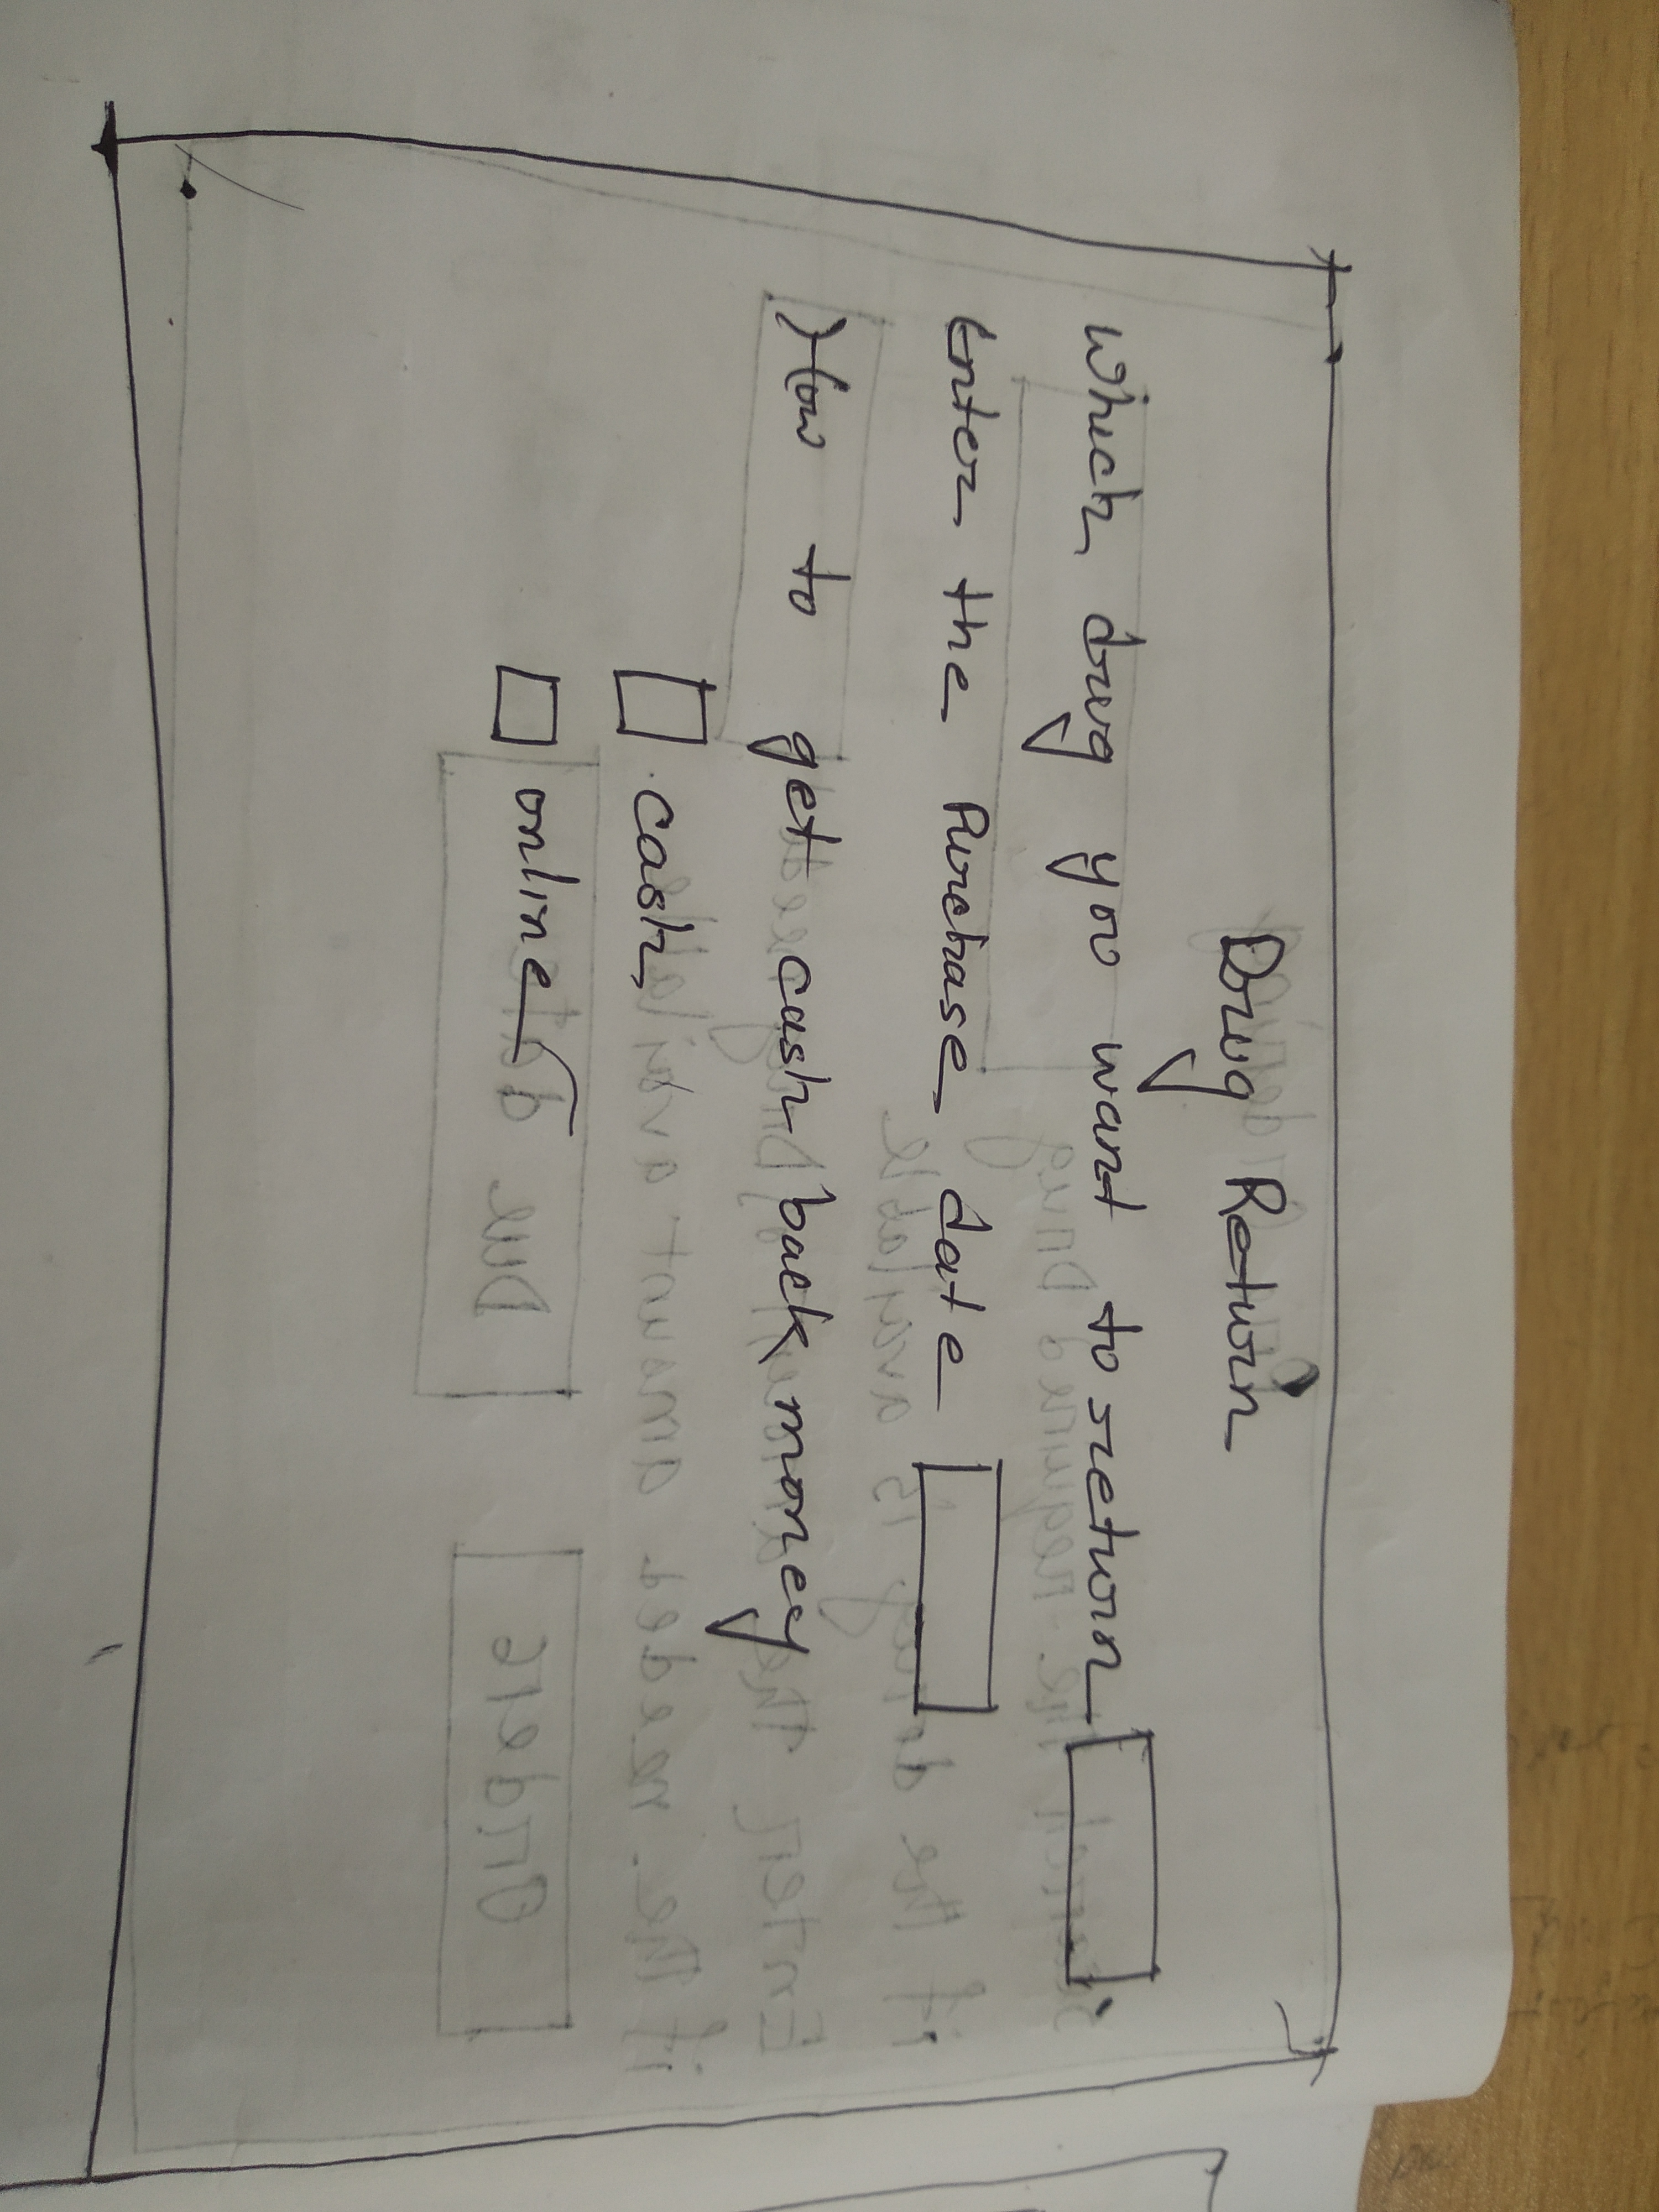 Drug Return
Which drug you want to return
Enter the Purchase date
How to get cash back money
cash
online